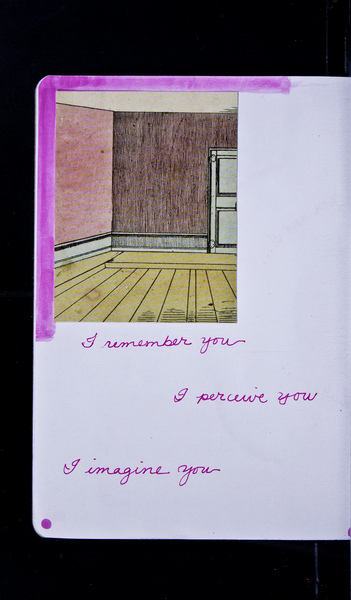 I remember you
I perceive you
I imagine you